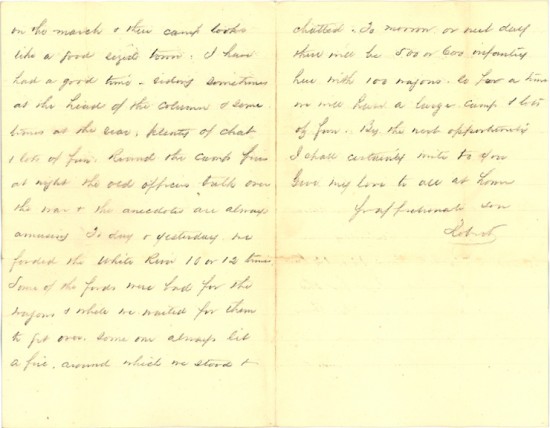 on the march & thier camp looks
like a good sized town. I have
had a good time. riding sometimes
at the head of the column & some
times at the rear, plenty of chat
& lots of fun. Round the camp fires
at night the old officers talk over
the war & the anecdotes are always
amusing To day & yesterday we
forded the White River 10 or 12 times
Some of the fords were bad for the
wagons & while we waited for them
to get over some one always lit
a fire, around which we stood &
chatted. To morrow or next day
there will be 500 or 600 infantry
here with 100 wagons. So for a time
we will have a large camp & lots
of fun. By the next opportunity
I shall certainly write to you
Give my love to all at home
Yr affectionate son
Robert